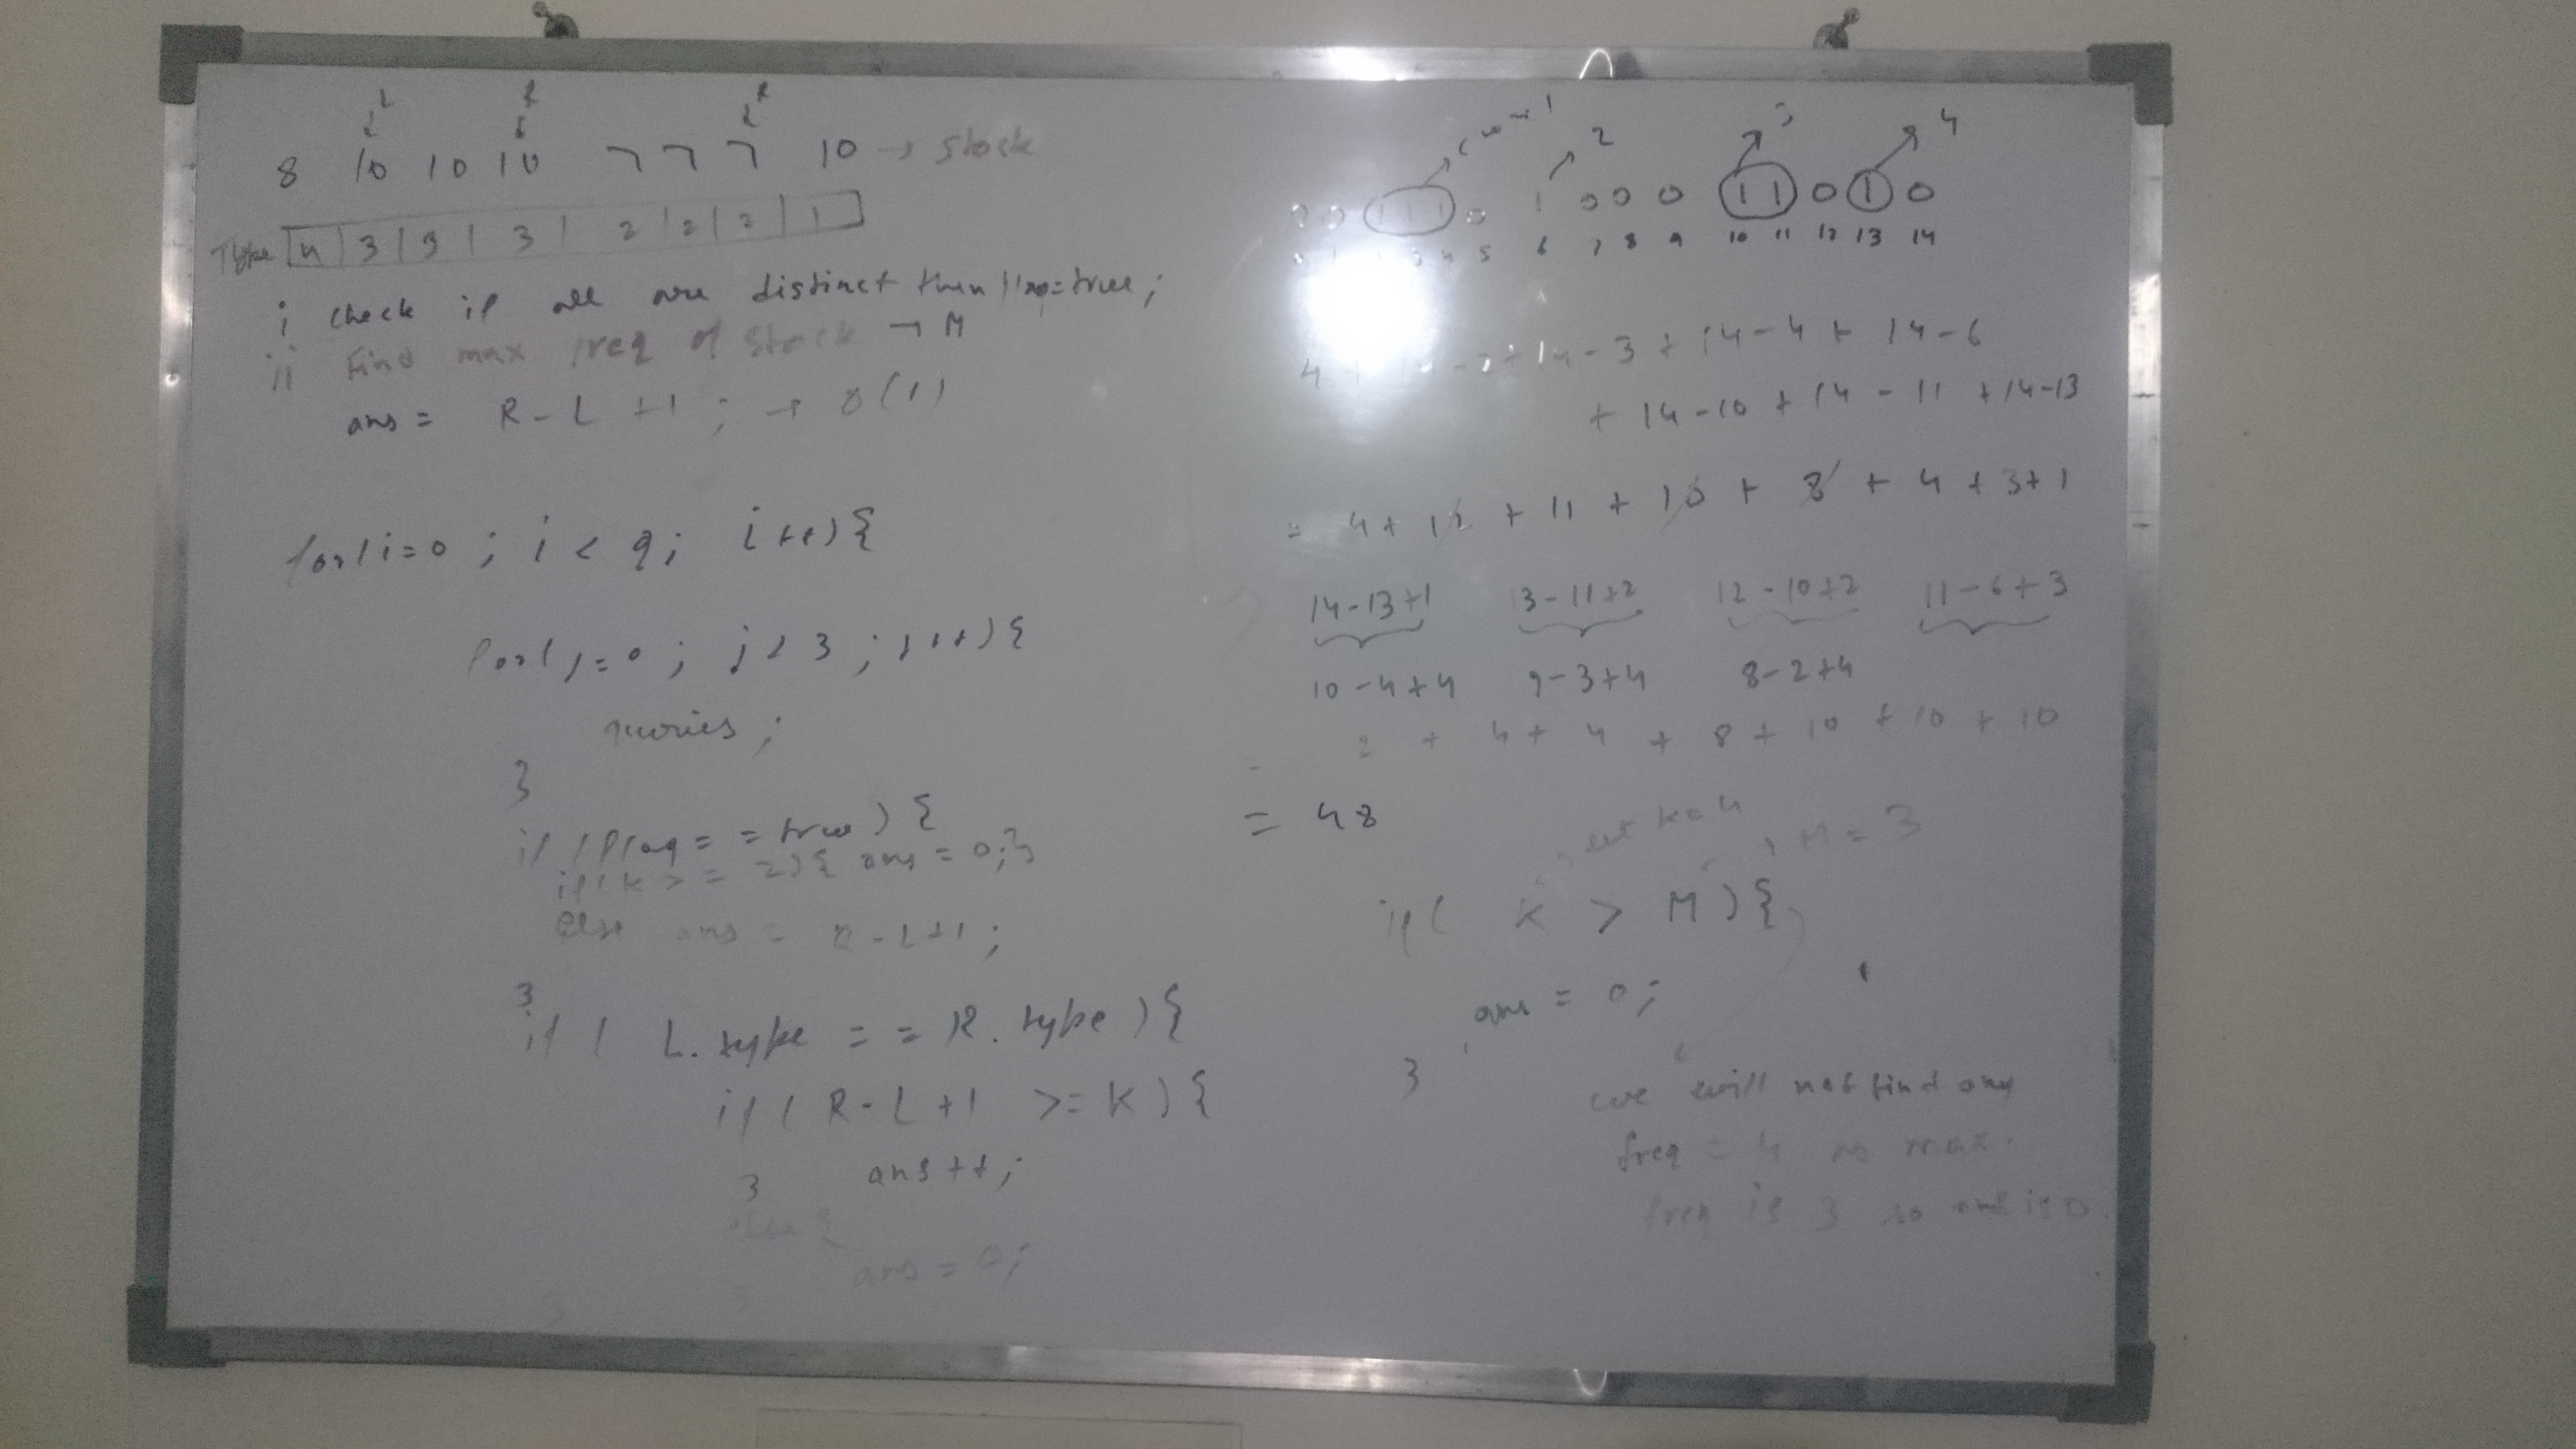 L R R
8 10 10 10 7 7 7 10 → stock
Type 4 3 3 3 2 2 2 1
i check if all are distinct then flag=true;
ii Find max freq of stock → M
ans = R - L + 1 ; → O(1)
for(i=0 ; i < q; i++){
for(j=0 ; j < 3 ; j++){
queries;
}
if (flag == true) {
if(k >= 2){ ans = 0;}
else ans = R-L+1;
}
if ( L.type == R.type){
if ( R-L+1 >= K){
ans++;
}
else{
ans = 0;
}
}
count 1 2 3 4
0 0 1 1 1 0 1 0 0 0 1 1 0 1 0
5 6 7 8 9 10 11 12 13 14
4 + 14-2 + 14-3 + 14-4 + 14-6
+ 14-10 + 14-11 + 14-13
= 4 + 12 + 11 + 10 + 8 + 4 + 3 + 1
14-13+1 13-11+2 12-10+2 11-6+3
10-4+4 9-3+4 8-2+4
2 + 4 + 4 + 8 + 10 + 10 + 10
= 48
let k=4, M=3
if( K > M){
ans = 0;
}
we will not find any
freq = 4 as max.
freq is 3 so ans is 0.